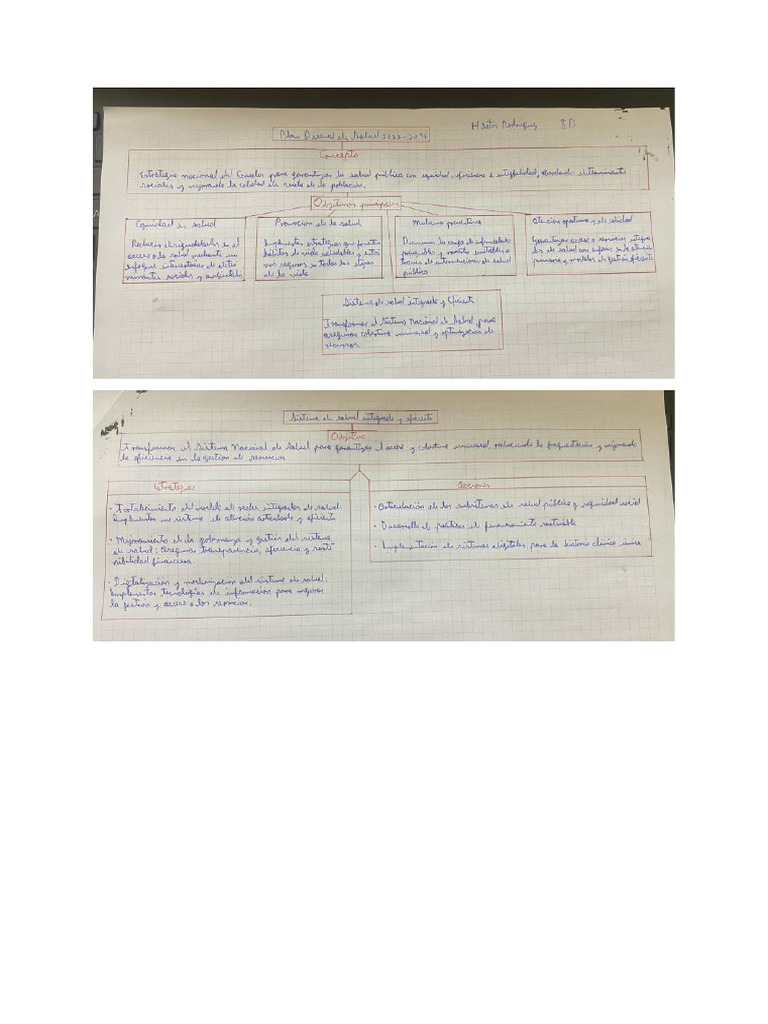 Hector Rodriguez 8B
Plan Decenal de Salud 2022-2031
Concepto
Estrategia nacional del Ecuador para garantizar la salud pública con equidad, eficiencia e integralidad, abordando determinantes
sociales y mejorando la calidad de vida de la población.
Objetivos principales
Equidad en salud
Reducir desigualdades en el
acceso a la salud mediante un
enfoque intersectorial de deter
minantes sociales y ambientales
Promocion de la salud
Implementar estrategias que fomenten
hábitos de vida saludables y entor
nos seguros en todas las etapas
de la vida
Medicina preventiva
Disminuir la carga de enfermedades
prevenibles y muertes evitables a
través de intervenciones de salud
pública
Atencion oportuna y de calidad
Garantizar acceso a servicios integra
les de salud con enfoque en la atencion
primaria y modelos de gestión eficiente
Sistema de salud integrado y eficiente
Transformar el Sistema Nacional de Salud para
asegurar cobertura universal y optimización de
recursos.
Sistema de salud integrado y eficiente
Objetivo
Transformar el Sistema Nacional de Salud para garantizar el acceso y cobertura universal, reduciendo la fragmentación y mejorando
la eficiencia en la gestion de recursos
Estrategias
· Fortalecimiento del modelo de redes integradas de salud:
Implementar un sistema de atención articulado y eficiente
· Mejoramiento de la gobernanza y gestión del sistema
de salud: Asegurar transparencia, eficiencia y soste
nibilidad financiera.
· Digitalización y modernizacion del sistema de salud:
Implementar tecnologías de informacion para mejorar
la gestión y acceso a los servicios.
Acciones
· Articulación de los subsistemas de salud pública y seguridad social
· Desarrollo de políticas de financiamiento sostenible
· Implementación de sistemas digitales para la historia clínica única